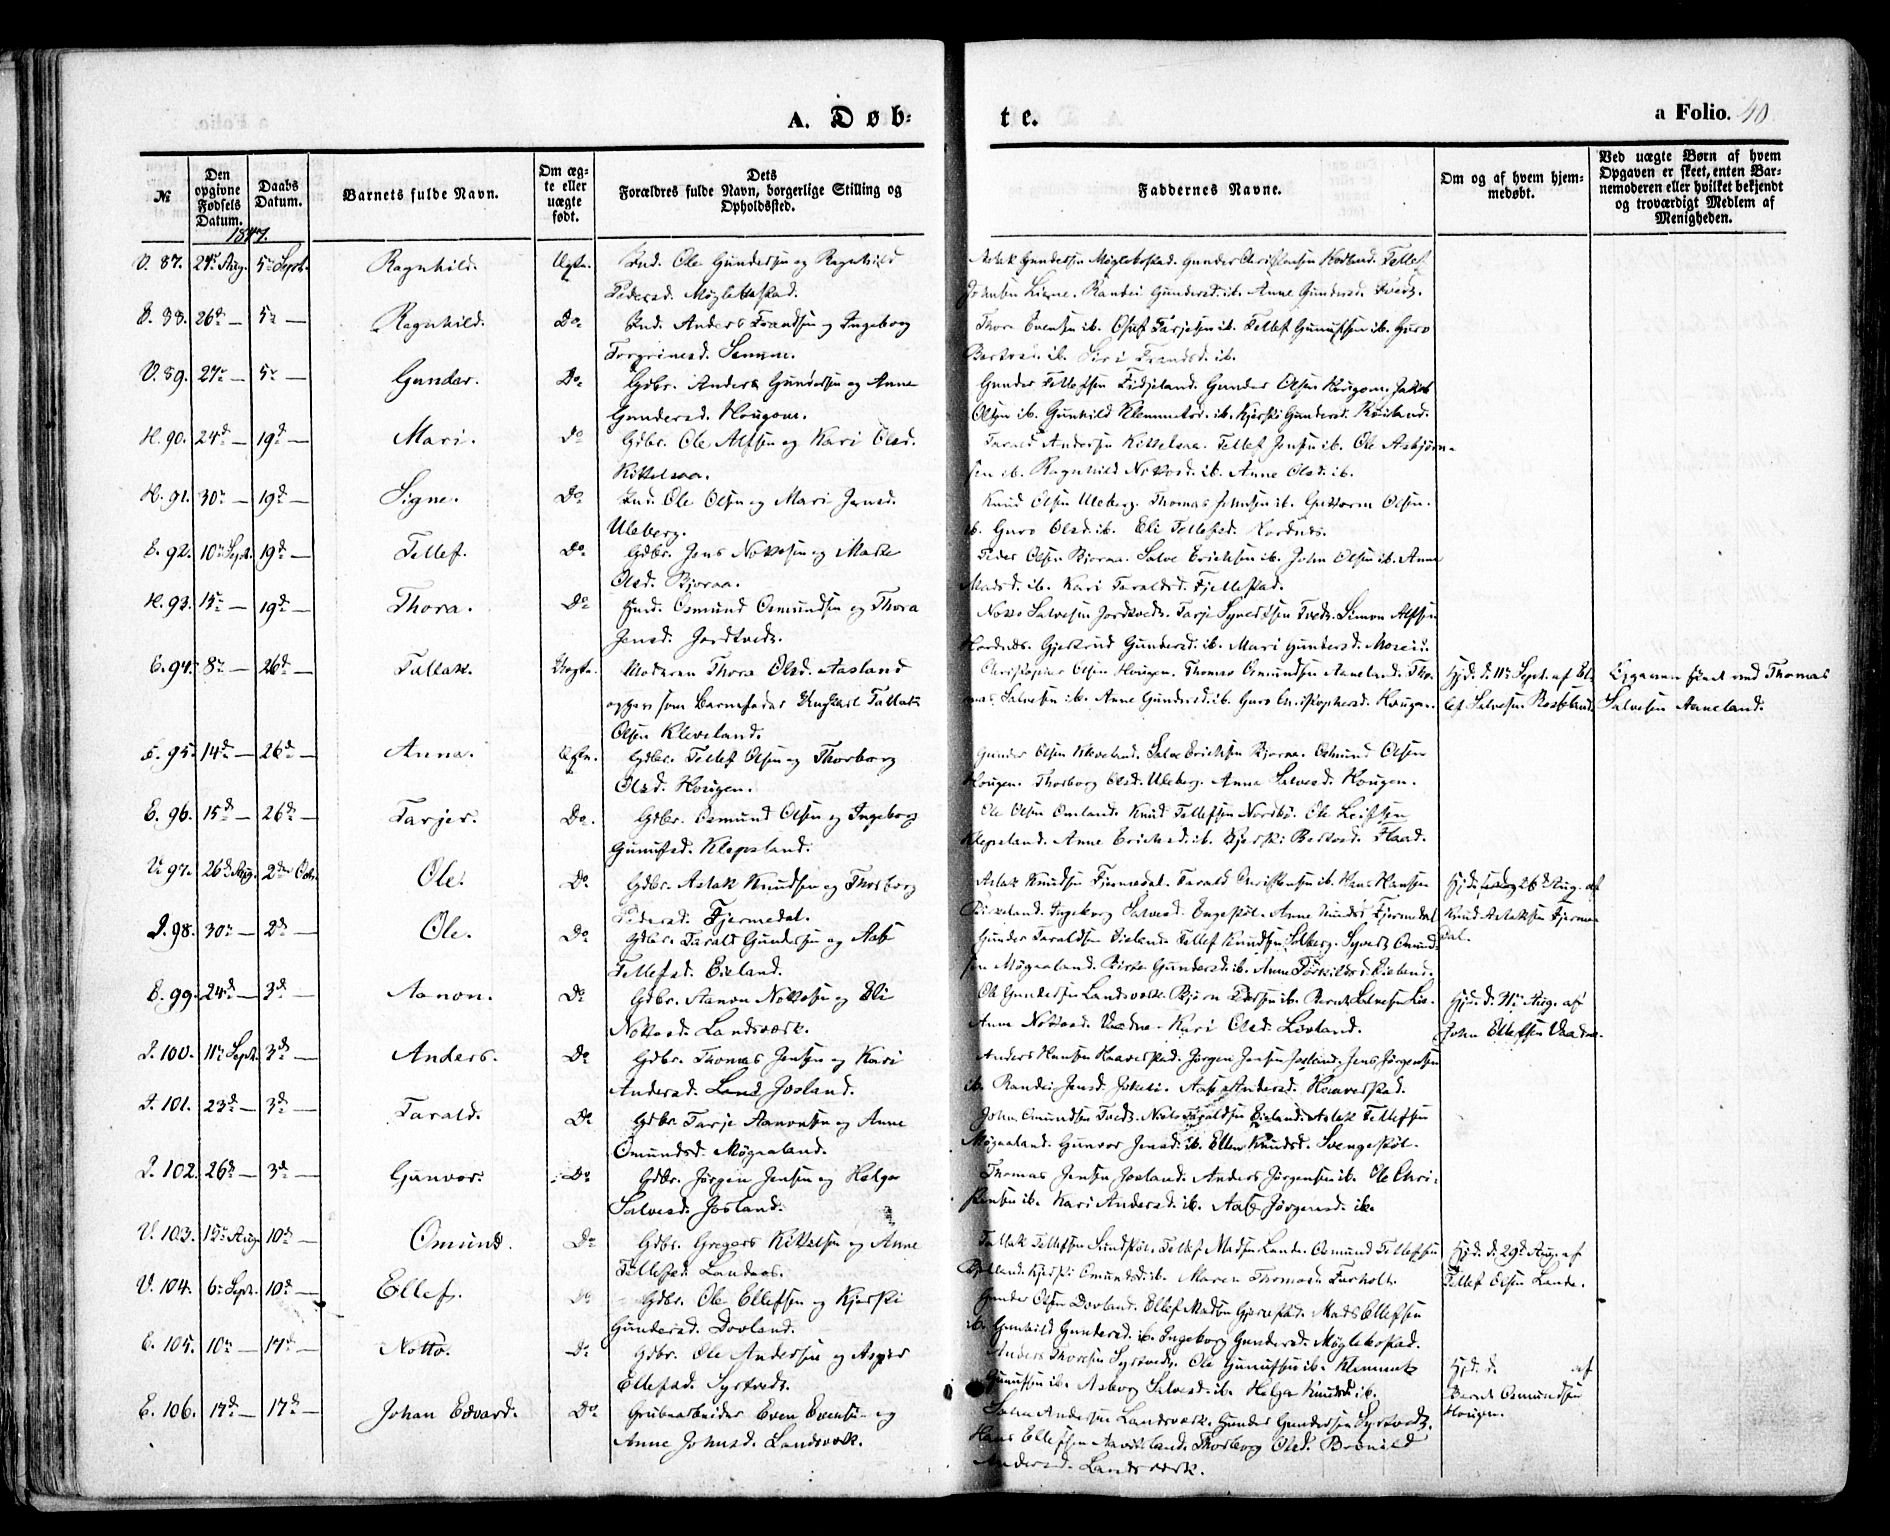 A. Døb-
te.
a Folio. 40
№
Den opgivne Fødsels Datum.
Daabs Datum.
Barnets fulde Navn.
Om ægte eller uægte født.
Dets Forældres fulde Navn, borgerlige Stilling og Opholdssted.
Faddernes Navne.
Om og af hvem hjemmedøbt.
Ved uægte Børn af hvem Opgaven er skeet, enten Barnemoderen eller hvilket bekjendt og troværdigt Medlem af Menigheden.
1847.
V. 87. 24de Aug. 5te Sept. Ragnhild. Ægte. Ind. Ole Gundersen og Ragnhild
Pedersd. Møglebstad.
Aslak Gundersen Møglebstad. Gunder Christensen Tellef
Randei Gundersd. ib. Anne Gundersd. Tvedt.
88. 26de — 5te — Ragnhild. Do Ind. Anders Frandsen og Ingeborg
Torgrimsd. Senum.
Thore Evensen ib. Oluf Tarjesen ib. Tellef Gunulfsen ib. Guro
ib. Siri Frandsd. ib.
V. 89. 27de — 5te — Gunder. Do Gdbr. Anders Gundersen og Anne
Gundersd. Hougom.
Gunder Tellefsen Fidjeland. Gunder Olsen Hougom. Jakob
Olsen ib. Gunhild Klemmetsd. ib. Kjersti Gundersd. Røiland.
H. 90. 24de — 19de — Mari. Do Gdbr. Ole Alfsen og Kari Olsd.
Kittelsaa.
Tarald Andersen Kittelsaa. Tellef Jensen ib. Ole Asbjørn-
sen ib. Ragnhild Nottosd. ib. Anne Olsd. ib.
H. 91. 30te — 19de — Signe. Do Ind. Ole Olsen og Mari Jensd.
Uleberg.
Knud Olsen Uleberg. Thomas Johnsen ib. Guttorm Olsen
ib. Guro Olsd. ib. Eli Tellefsd. Hordnes.
E. 92. 10de Sept. 19de — Tellef. Do Gdbr. Jens Nottosen og Marte
Olsd. Bjoraa.
Peder Olsen Bjoraa. Salve Erichsen ib. John Olsen ib. Anne
Madsd. ib. Kari Taraldsd. Fjellestad.
H. 93. 15de — 19de — Thora. Do Ind. Osmund Osmundsen og Thora
Jensd. Jordtvedt.
Notto Salvesen Jordtvedt. Tarje Syvertsen Tvedt. Simon Alfsen
Hordnes. Gjertrud Gundersd. ib. Mari Gundersd. Moseid.
E. 94. 8de — 26de — Tallak. Uægte. Moderen Thora Olsd. Aasland
opgav som Barnefader Ungkarl Tallak
Olsen Kleveland.
Christopher Olsen Hougen. Thomas Osmundsen Aaneland. Tho-
mas Salvesen ib. Anne Gundersd. ib. Guro Christophersd. Hougen.
Hjd. d. 11te Sept. af El-
lef Salvesen
Opgaven skeet ved Thomas
Salvesen Aaneland.
E. 95. 14de — 26de — Anna. Ægte. Gdbr. Tellef Olsen og Thorborg
Olsd. Hougen.
Gunder Olsen Kleveland. Salve Erichsen Bjoraa. Osmund Olsen
Hougen. Thorborg Olsd. Uleberg. Anna Salvesd. Hougen.
E. 96. 15de — 26de — Tarjer. Do. Gdbr. Osmund Olsen og Ingeborg
Gunufsd. Klepsland.
Ole Olsen Omland. Knud Tellefsen Nordbø. Ole Leifsen
Klepsland. Anne Erichsd. ib. Kjersti Bertosd. Flaad.
V. 97. 26de Aug. 2den Octr. Ole. Do Gdbr. Aslak Knudsen og Thorborg
Pedersd. Fjermedal.
Aslak Knudsen Fjermedal. Tarald Christensen ib. Hans Hansen
Birkeland. Ingeborg Salvesd. Engestøl. Anne Knudsd. Fjermedal.
Hjd. 26de Aug. af
Knud Aslaksen Fjerme-
dal.
I. 98. 30te — 2den — Ole. Do Gdbr. Tarald Gundersen og Aase
Tellefsd. Eieland.
Gunder Taraldsen Eieland. Tellef Knudsen Solberg. Syvert Omund-
sen Møgaaland. Birte Gundersd. ib. Anne Torkildsd. Eieland.
E. 99. 24de — 3die — Aanon. Do Gdbr. Aanon Nottosen og Eli
Nottosd. Landsværk.
Ole Gundersen Landsværk. Bjørn ib. Bernt Salvesen Lis-
Anne Nottosd. Vaadne. Kari Olsd. Lisland.
Hjd. d. 31te Aug. af
John Ellefsen Vaadne.
I. 100. 11te Sept. 3die — Anders. Do Gdbr. Thomas Jensen og Kari
Andersd. Josland.
Anders Hansen Haavestad. Jørgen Jensen Josland. Jens Jørgensen
ib. Randei Jensd. Jokeli. Aase Andersd. Haavestad.
I. 101. 23de — 3die — Tarald. Do Gdbr. Tarje Aanonsen og Anne
Omundsd. Møgaaland.
John Omundsen Tvedt. Niels Taraldsen Eieland. Aslak Tellefsen
Møgaaland. Gunvor Jensd. ib. Ellen Knudsd. Svengestøl.
I. 102. 26de — 3die — Gunvor. Do Gdbr. Jørgen Jensen og Helge
Salvesd. Josland.
Thomas Jensen Josland. Anders Jørgensen ib. Ole Chri-
stensen ib. Kari Andersd. ib. Aase Jørgensd. ib.
V. 103. 15de Aug. 10de — Omund. Do Gdbr. Gregers Kittelsen og Anne
Tellefsd. Landaas.
Tallak Tellefsen Sundstøl. Tellef Madsen Lande. Osmund Tellefsen
Kjersti Omundsd. ib. Maren Thomasd. Tarholt.
Hjd. d. 29de Aug. af
Tellef Olsen Lande.
V. 104. 6te Sept. 10de — Ellef. Do Gdbr. Ole Ellefsen og Kjersti
Gundersd. Dovland.
Gunder Olsen Dovland. Ellef Madsen Gjerrestad. Mads Ellefsen
ib. Gunhild Gundersd. ib. Ingeborg Gundersd. Møglebstad.
E. 105. 10de — 17de — Notto. Do Gdbr. Ole Andersen og Asper
Ellefsd. Syrtvedt.
Anders Thoresen Syrtvedt. Ole Gunufsen ib. Klemmet
Gunufsen ib. Asborg Salvesd. ib. Helga Knudsd. ib.
Hjd. d. af
Bernt Osmundsen
Hougen.
E. 106. 17de — 17de — Johan Edvard. Do Grubearbeider Even Evensen og
Anne Johnsd. Landsværk.
John Andersen Landsværk. Gunder Gundersen Syrtvedt.
Hans Ellefsen Thorborg Olsd.
Andersd. Landsværk.